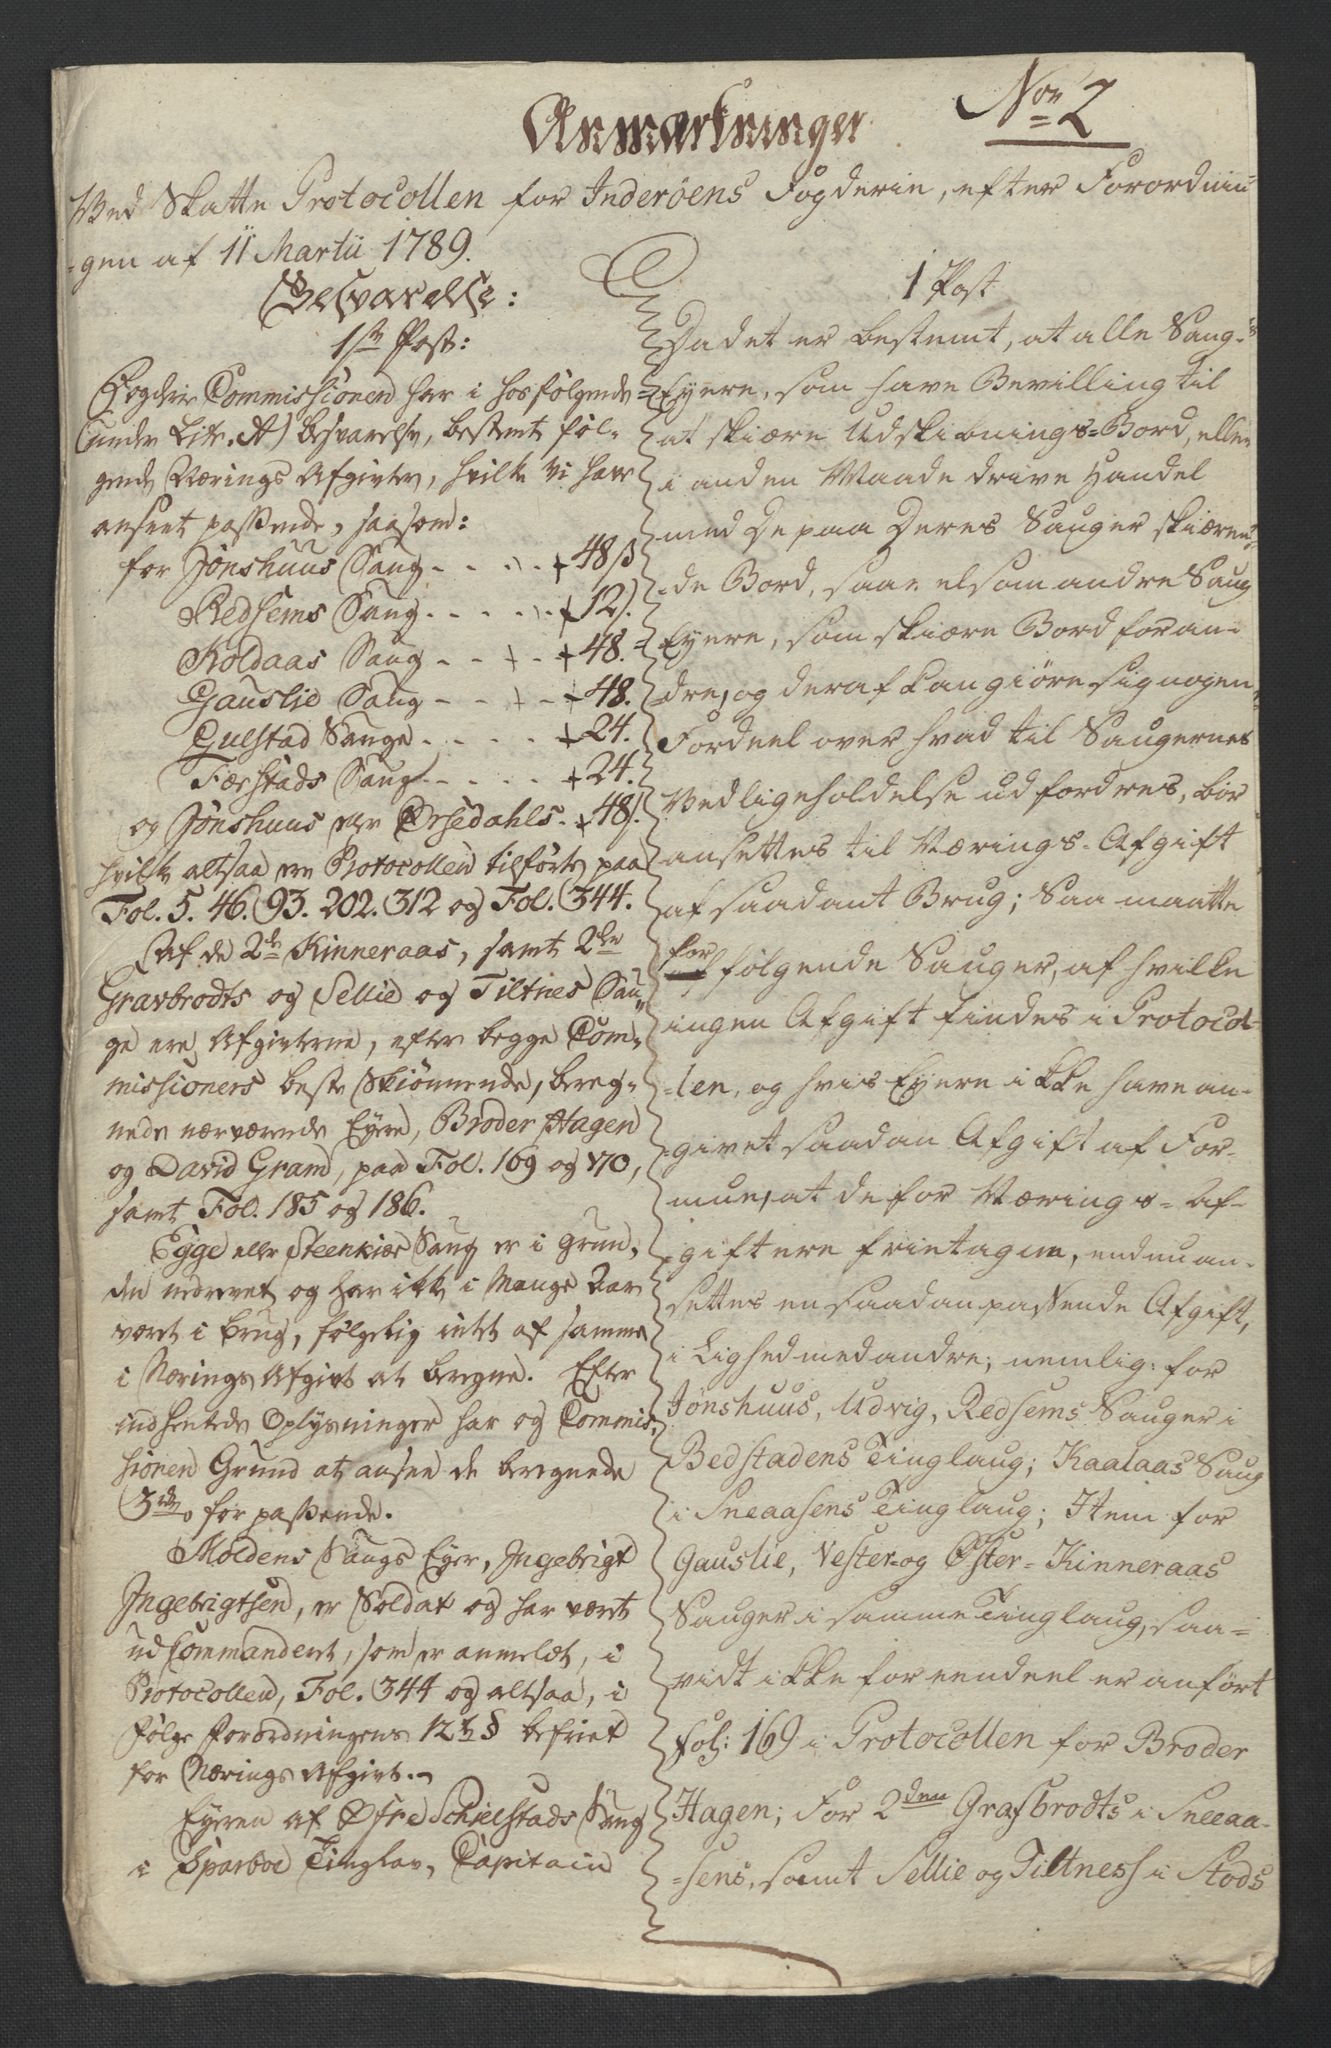 Anmærkninger
No: 2
Ved Skatte Protocollen for Inderöens Fogderie, efter Forordnin-
-gen af 11 Martii 1789.
Besvarelse:
1ste Post:
Fogderie Commissionen har i hosfølgende
(under Litr. A) Besvarelse, bestemt føl-
gende Nærings Afgivter, hvilke vi have
anseet passende, saasom:
for Jönshuus Saug - - - - 48 ß
Redsems Saug - - - - 12 ß.
Koldaas Saug - - - - 48.
Gauslie Saug - - - - 48.
Gulstad Sauge - - - - 24.
Færstads Saug - - - - 24.
og Jönshuus eller Ørsedahls - 48 ß.
hvilke altsaa ere Protocollen tilførte paa
Fol. 5. 46. 93. 202. 312 og Fol. 344.
Af de 2de Kinneraas, samt 2de
Gravbrodts og Sellie og Tiltnes Sau-
ge ere Afgivterne, efter begge Com-
missioners beste Skiönnende, bereg-
nede nærværende Eyere, Broder Hagen
og David Gram, paa Fol. 169 og 170,
samt Fol. 185 og 186.
Egge eller Steenkiær Saug er i Grun-
den nedrevet og har ikke i Mange Aar
været i brug, følgelig intet af samme
i Nærings Afgivt at beregne. Efter
indhentede Oplysninger har og Commis-
sionen Grund at ansee de beregnede
3de for passende.
Moldens Saugs Eyer, Ingebrigt
Ingebrigtsen, er Soldat og har været
ud Commanderet, som er anmeldt, i
Protocollen, Fol. 344 og altsaa, i
følge Forordningens 12te § befriet
for Nærings Afgivt.
Eyeren af Østre Schielstads Saug
i Sparboe Tinglav, Capitain
1 Post
Da det er bestemt, at alle Saug-
Eyere, som have Bevilling til
at skiære Udskibnings-Bord, eller
i anden Maade drive Handel
med De paa Deres Sauger skiæren-
-de Bord, saavelsom andre Saug
Eyere, som skiære Bord for an-
dre, og deraf kan giöre sig nogen
Fordeel over hvad til Saugernes
Vedligeholdelse udfordres, bör
ansettes til Nærings-Afgift
af saadant Brug; Saa maatte
for
følgende Sauger, af hvilke
ingen Afgift findes i Protocol-
-len, og hvis Eyere ikke have an-
-givet saadan Afgift af For-
mue, at de for Nærings-Af-
-gift ere frietagne, endnu an-
settes en saadan passende Afgift,
i Lighed med andre; nemlig: for
Jönshuus, Udvig, Redsems Sauger i
Bedstadens Tinglaug; Kaalaas Saug
i Sneaasens Tinglaug; Item for
Gauslie, Vester- og Öster-Kinneraas
Sauger i samme Tinglaug, saa-
vidt ikke for eendeel er anfört
fol: 169 i Protocollen for Broder
Hagen; For 2den Grafbrodts i Sneeaa-
-sens, samt Sellie og Tiltness i Stods